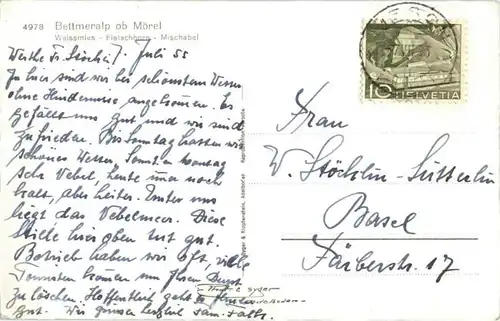 4978 Bettmeralp ob Mörel
Weissmies - Fletschhorn - Mischabel
7. Juli 55
hier sind wir bei schönstem Wetter
ohne Hindernisse angekommen. Es
gefällt uns gut und wir sind
zufrieden. Bis Sonntag hatten wir
schönes Wetter, Sonntag
sehr Nebel, heute immer noch
kalt, aber heiter. Unter uns
liegt das Nebelmeer. Diese
Stille hier oben tut gut.
Betrieb haben wir oft, viele
Touristen kommen um Ihren Durst
zu löschen. Hoffentlich geht es Ihnen
gut. Wir grüssen herzlich Fam.
HELVETIA
10
Frau
W. Stöcklin-Sütterlin
Basel
Färberstr. 17